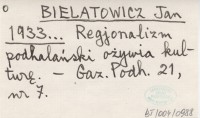 BIELATOWICZ Jan
1933... Regjonalizm
podhalański ożywia kul-
turę. — Gaz. Podh. 21,
nr 7.
AJ/004/0988